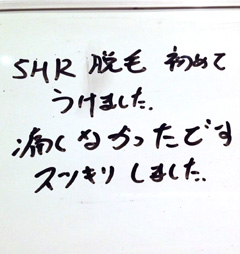 SHR 脱毛 初めて
うけました.
痛くなかったです
スッキリしました.